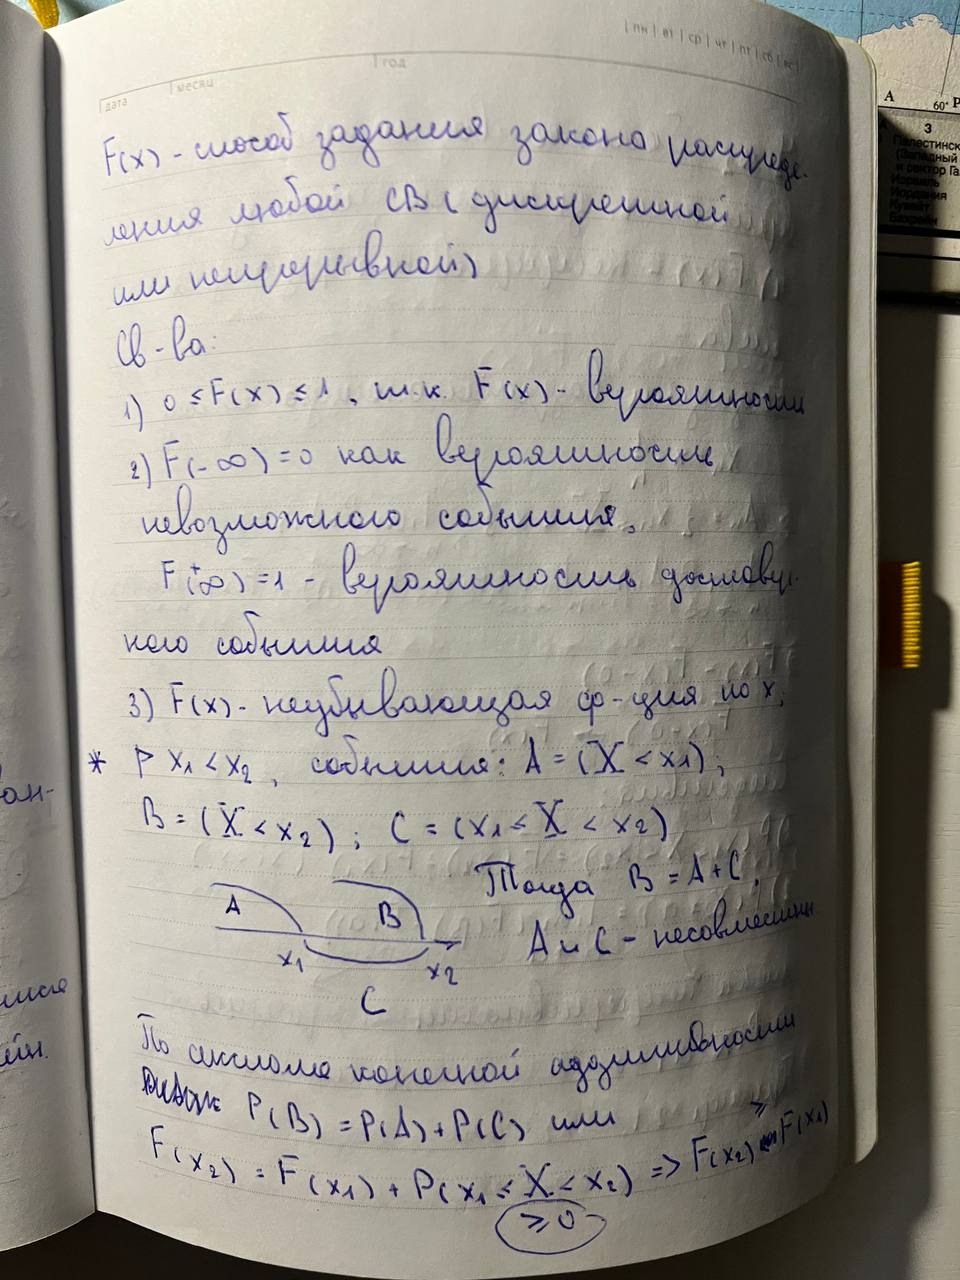 пн | вт | ср | чт | пт | сб | вс
дата месяц год
F(x) - способ задания закона распреде-
ления любой СВ (дискретной
или непрерывной)
Св-ва:
1) 0 ≤ F(x) ≤ 1, т.к. F(x) - вероятность
2) F(-∞) = 0 как вероятность
невозможного события,
F(+∞) = 1 - вероятность достовер-
ного события
3) F(x) - неубывающая ф-ция по x,
* P x₁ < x₂, события: A = (X < x₁);
B = (X < x₂); C = (x₁ ≤ X < x₂)
Тогда B = A + C,
A и C - несовместны
A B
x₁ x₂
C
По аксиоме конечной аддитивности
P(B) = P(A) + P(C) или
F(x₂) = F(x₁) + P(x₁ ≤ X < x₂) => F(x₂) ≥ F(x₁)
≥ 0
A 60°
3
Палестинск
(Западный
и сектор Га
Израиль
Иордания
Кувейт
Бахрейн